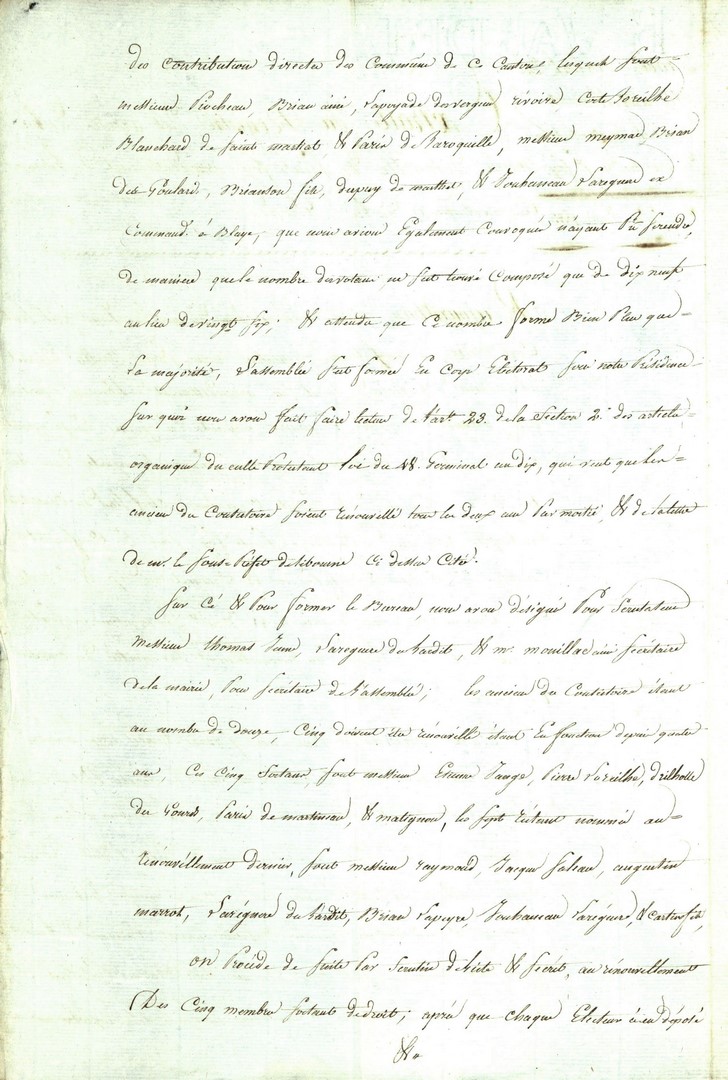 des contribution directes des Commune de ce Canton, lesquels sont
messieurs Piocheau, Brian ainé, Lapeyade desvergne révoire Coste Boreilhe
Blanchard de saint martial, & Paris de Baroquille, messieurs meymac, Brian
des Goulard, Brianson fils, dupuy de marthet, & Touhanneau Larégnere ex
Command. à Blaye, que nous avions Egalement Convoqués n'ayant Pu se rendre,
de maniere que le nombre des votans ne s'est trouvé Composé que de dix neuf
au lieu de vingt six; & attendu que Ce nombre forme Bien Plus que
La majorité, L'assemblée s'est formée En Corps Electoral sous notre Présidence
sur quoi nous avons fait faire lecture de l'art. 23. de la Section 2e. des articles
organique du culte Protestant loi du 18. Germinal an dix, qui veut que les
anciens du Consistoire soient renouvellé tous les deux ans Par moitié, & de la lettre
de mr. le sous Préfet de Libourne Ci dessus Cité.
Sur Cé & Pour former le Bureau, nous avons désigné Pour Scrutateurs
messieurs thomas Jeune, Laregnere du hardit, & mr. mouillac ainé secrétaire
de la mairie, Pour secrétaire de L'assemblé; les anciens du Consistoire étant
au nombre de douze, Cinq doivent être rénouvellé étant En fonction depuis quatre
ans, Ces Cinq Sortans, sont messieurs Jauge, Pierre Lareilhe, drilholle
du Gourd, Paris de martineau, & matignon, les sept réstans nommés au
rénouvellement dernier, sont messieurs raymond, Jacques faleau, augustin
marrot, Larégnere du hardit, Brian Lapeyre, Touhanneau Larégnere, & Cartier fils,
on Procède de suite Par Scrutin de liste & secrét, au rénouvellement
Des Cinq membres sortans de droit; après que chaque Electeur à eu déposé
&a